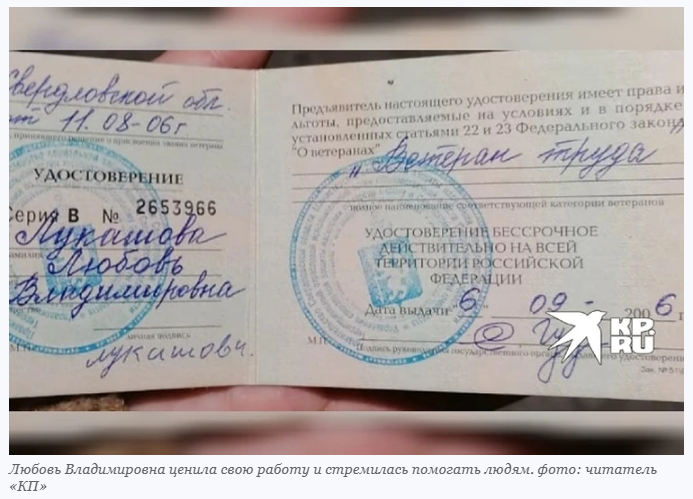 Свердловской обл.
от 11.08-06г
УДОСТОВЕРЕНИЕ
Серия В № 2653966
Лукашова
Любовь
Владимировна
личная подпись
М.П.
Предъявитель настоящего удостоверения имеет права и
льготы, предоставляемые на условиях и в порядке
установленных статьями 22 и 23 Федерального закона
"О ветеранах"
„Ветеран труда
полное наименование соответствующей категории ветеранов
УДОСТОВЕРЕНИЕ БЕССРОЧНОЕ
ДЕЙСТВИТЕЛЬНО НА ВСЕЙ
ТЕРРИТОРИИ РОССИЙСКОЙ
ФЕДЕРАЦИИ
Дата выдачи "6" 09 - 2006 г
М.П.
Подпись руководителя государственного органа
удостоверение
KP.
RU
Любовь Владимировна ценила свою работу и стремилась помогать людям. фото: читатель
«КП»